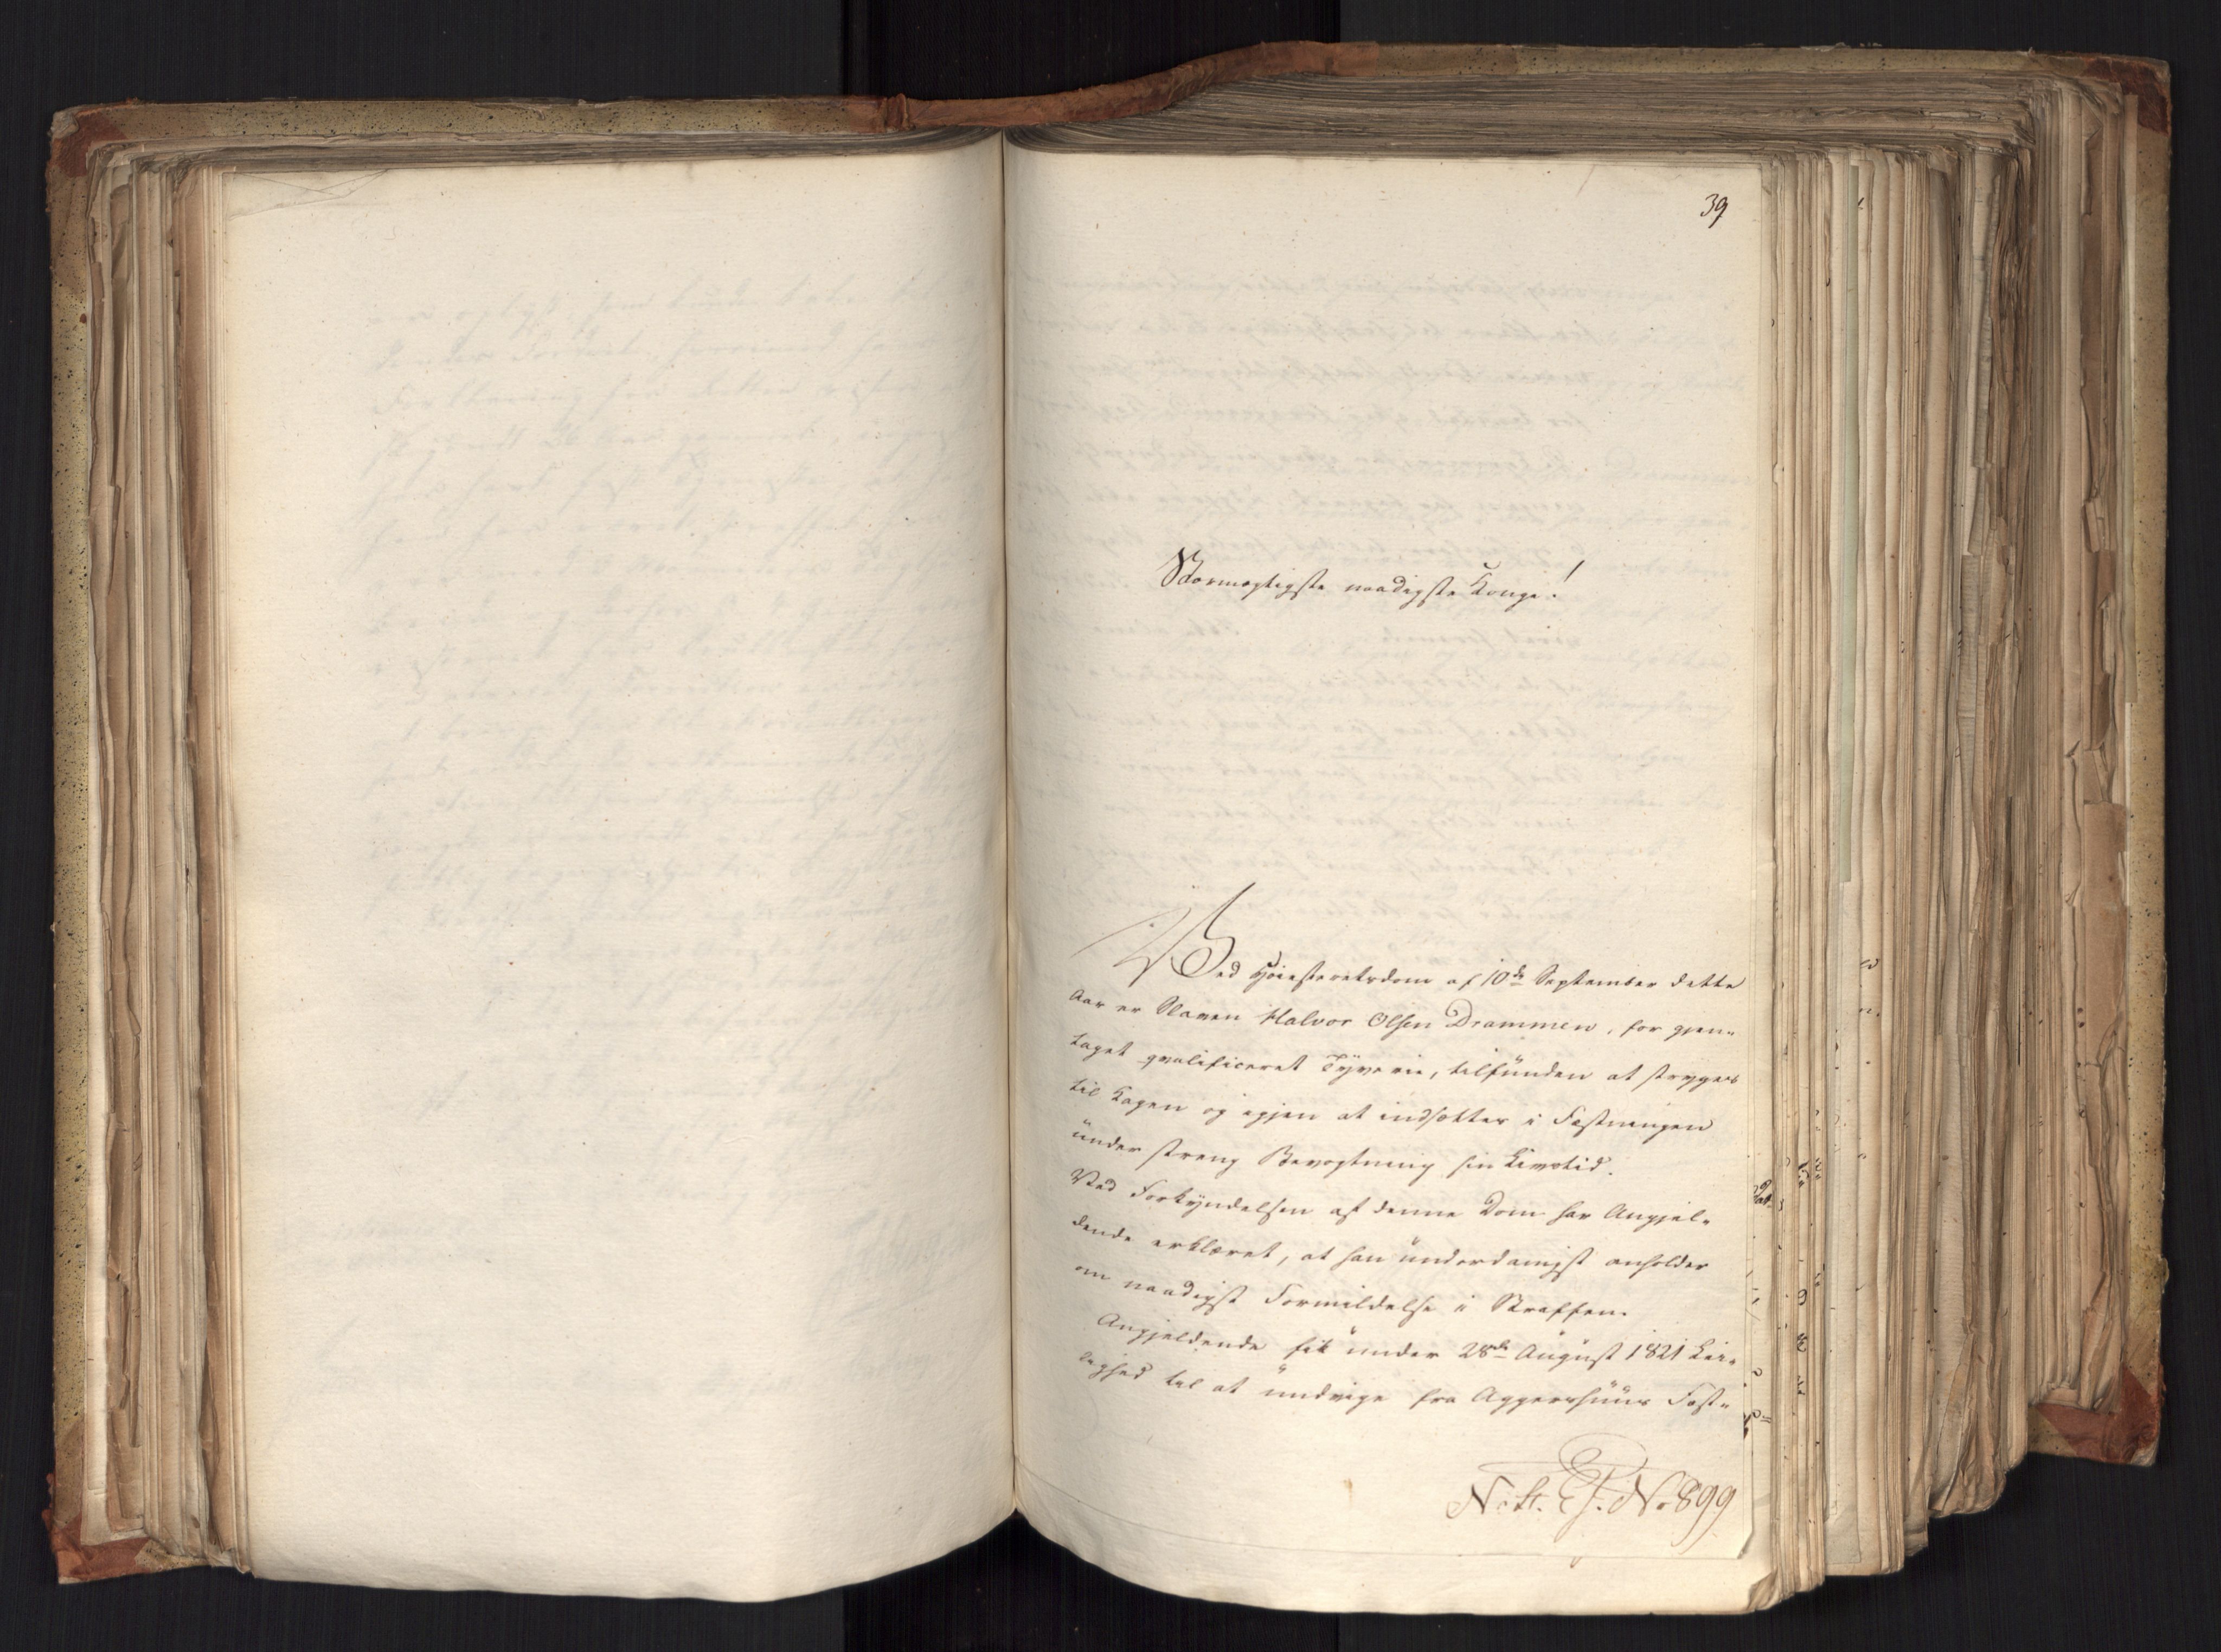 39
Stormægtigste naadigste Konge!
Ved Høiesteretsdom af 10de September dette
Aar er Slaven Halvor Olsen Drammen, for gjen-
taget qvalificeret Tyverie, tilfunden at stryges
til Kagen og igjen at indsættes i Fæstningen
under streng Bevogtning sin Livstid.
Ved Forkyndelsen af denne Dom har Angjel-
dende erklæret, at han underdanigst anholder
om naadigst Formildelse i Straffen.
Angjeldende fik under 28de August 1821 Lei-
lighed til at undvige fra Aggershuus Fæst-
No 899